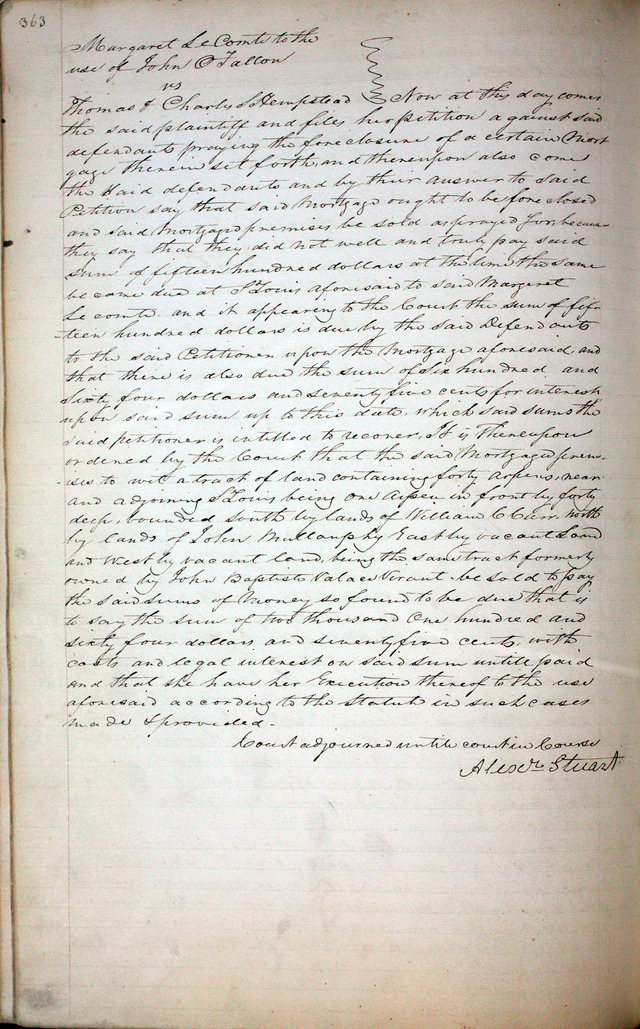 363
Margaret LeComte to the
use of John O'Fallon
vs
Thomas & Charles S Hempstead Now at this day comes
the said plaintiff and files her petition against said
defendants praying the foreclosure of a certain Mort
gage therein set forth, and thereupon also come
the said defendants and by their answer to said
Petition say that said Mortgage ought to be foreclosed
and said Mortgaged premises be sold as prayed for, because
they say that they did not well and truly pay said
sum of fifteen hundred dollars at the time the same
became due at St Louis aforesaid to said Margaret
Lecomte. and it appearing to the Court the sum of fif-
-teen hundred dollars is due by the said Defendants
to the said Petitioner upon the Mortgage aforesaid, and
that there is also due the sum of Six hundred and
Sixty four dollars and seventy five cents for interest
upon said sum up to this date, which said sums the
said petitioner is intitled to recover, It is Thereupon
ordered by the Court that the said Mortgaged prem-
-ises to wit a tract of land containing forty Arpens, near
and adjoining St Louis being one Arpen in front by forty
deep, bounded South by lands of William C Carr, north
by lands of John Mullanphy East by vacant Land
and West by vacant land, being the same tract formerly
owned by John Baptiste be sold to pay
the said sums of Money so found to be due that is
to say the sum of two thousand One hundred and
sixty four dollars and seventy five cents, with
costs and legal interest on said sum untill paid
and that she have her Execution thereof to the use
aforesaid according to the Statute in such cases
made & provided.
Court adjourned untill court in Course
Alexr. Stuart